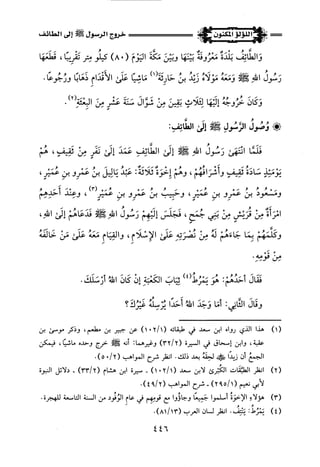 اللؤلؤ المكنون
خروج الرسول ﷺ إلى الطائف
وَالطَّائِفُ بَلْدَةٌ مَعْرُوفَةٌ بَيْنَهَا وَبَيْنَ مَكَّةَ الْيَوْمَ (٨٠) كِيلُو مِتْرٍ تَقْرِيبًا، قَطَعَهَا
رَسُولُ اللهِ ﷺ وَمَعَهُ مَوْلَاهُ زَيْدُ بْنُ حَارِثَةَ(١) مَاشِيًا عَلَى الْأَقْدَامِ ذَهَابًا وَرُجُوعًا.
وَكَانَ خُرُوجُهُ إِلَيْهَا لِثَلَاثٍ بَقِينَ مِنْ شَوَّالَ سَنَةَ عَشْرٍ مِنَ الْبِعْثَةِ(٢).
* وُصُولُ الرَّسُولِ ﷺ إِلَى الطَّائِفِ:
فَلَمَّا انْتَهَى رَسُولُ اللهِ ﷺ إِلَى الطَّائِفِ عَمَدَ إِلَى نَفَرٍ مِنْ ثَقِيفٍ، هُمْ
يَوْمَئِذٍ سَادَةُ ثَقِيفٍ وَأَشْرَافُهُمْ، وَهُمْ إِخْوَةٌ ثَلَاثَةٌ: عَبْدُ يَالِيلَ بْنُ عَمْرِو بنِ عُمَيْرٍ،
وَمَسْعُودُ بْنُ عَمْرِو بنِ عُمَيْرٍ، وَحَبِيبُ بْنُ عَمْرِو بنِ عُمَيْرٍ(٣)، وَعِنْدَ أَحَدِهِمُ
امْرَأَةٌ مِنْ قُرَيْشٍ مِنْ بَنِي جُمَحٍ، فَجَلَسَ إِلَيْهِمْ رَسُولُ اللهِ ﷺ فَدَعَاهُمْ إِلَى اللهِ،
وَكَلَّمَهُمْ بِمَا جَاءَهُمْ لَهُ مِنْ نُصْرَتِهِ عَلَى الْإِسْلَامِ، وَالْقِيَامِ مَعَهُ عَلَى مَنْ خَالَفَهُ
مِنْ قَوْمِهِ.
فَقَالَ أَحَدُهُمْ: هُوَ يَمْرُطُ(٤) ثِيَابَ الْكَعْبَةِ إِنْ كَانَ اللهُ أَرْسَلَكَ.
وَقَالَ الثَّانِي: أَمَا وَجَدَ اللهُ أَحَدًا يُرْسِلُهُ غَيْرَكَ؟
(١) هذا الذي رواه ابن سعد في طبقاته (١٠٢/١) عن جبير بن مطعم، وذكر موسى بن
عقبة، وابن إسحاق في السيرة (٣٢/٢) وغيرهما: أنه ﷺ خرج وحده ماشيًا، فيمكن
الجمع أن زيدًا لحقه بعد ذلك. انظر شرح المواهب (٥٠/٢).
(٢) انظر الطبقات الكُبْرى لابن سعد (١٠٢/١) - سيرة ابن هشام (٣٣/٢) - دلائل النبوة
لأبي نعيم (٢٩٥/١) - شرح المواهب (٤٩/٢).
(٣) هؤلاء الإخوة أسلموا جَمِيعًا وجاؤوا مع قومهم في عام الوُفُود من السنة التاسعة للهجرة.
(٤) يَمْرُطُ: يَنْتِفُ. انظر لسان العرب (٨١/١٣).
٤٤٦